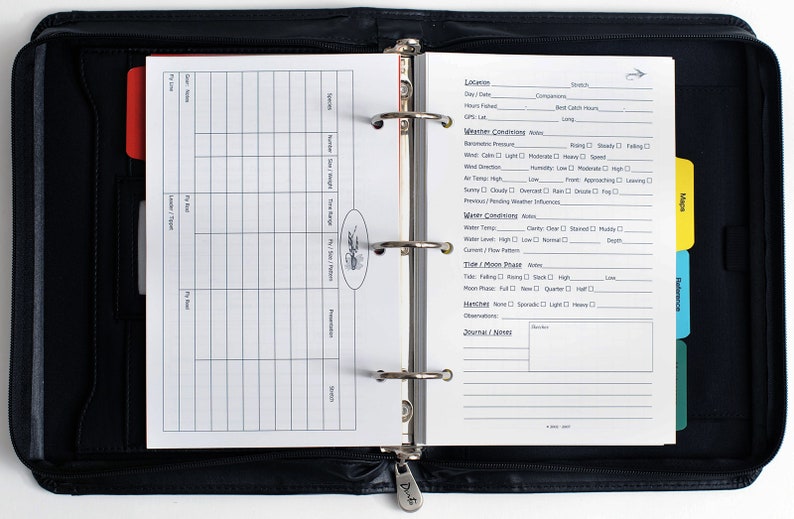 Species
Number
Size / Weight
Time Range
Fly / Size / Pattern
Presentation
Stretch
Gear: Notes
Fly Rod
Fly Reel
Fly Line
Leader / Tippet
Location Stretch
Day / Date Companions
Hours Fished - Best Catch Hours -
GPS: Lat. Long.
Weather Conditions Notes
Barometric Pressure Rising Steady Falling
Wind: Calm Light Moderate Heavy Speed
Wind Direction Humidity: Low Moderate High
Air Temp: High Low Front: Approaching Leaving
Sunny Cloudy Overcast Rain Drizzle Fog
Previous / Pending Weather Influences
Water Conditions Notes
Water Temp: Clarity: Clear Stained Muddy
Water Level: High Low Normal Depth
Current / Flow Pattern
Tide / Moon Phase Notes
Tide: Falling Rising Slack High Low
Moon Phase: Full New Quarter Half
Hatches None Sporadic Light Heavy
Observations:
Journal / Notes
Sketches
© 2002 - 2007
Maps
Reference